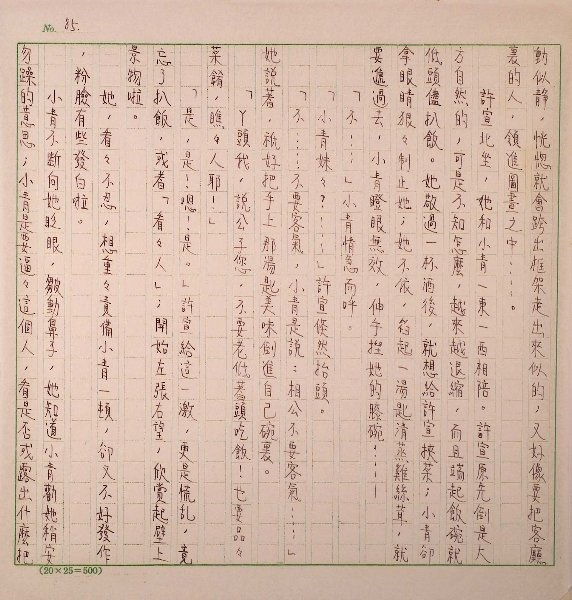 No. 85.
動似靜，恍惚就會跨出框架走出來似的，又好像要把客廳
裏的人，領進圖畫之中……。
許宣北坐，她和小青一東一西相陪。許宣原先倒是大
方自然的，可是不知怎麼，越來越退縮，而且端起飯碗就
低頭儘扒飯。她敬過一杯酒後，就想給許宣挾菜；小青卻
拿眼睛狠々制止她；她不依，舀起一湯匙清蒸雞絲茸，就
要進過去，小青瞪眼無效，伸手捏她的膝碗……
「不……」小青情急而呼。
「小青妹々？……」許宣倏然抬頭。
「不……不要客氣，小青是說：相公不要客氣……」
她說著，祇好把手上那湯匙美味倒進自己碗裏。
「丫頭我，說公子您，不要老低著頭吃飯！也要品々
菜餚，瞧々人耶！」
「是，是！嗯！是。」許宣給這一激，更是慌亂，竟
忘了扒飯，或者「看々人」；開始左張右望，欣賞起壁上
景物啦。
她，看々不忍，想重々責備小青一頓，卻又不好發作
，粉臉有些發白啦。
小青不斷向她眨眼，皺動鼻子，她知道小青勸她稍安
勿躁的意思；小青是要逼々這個人，看是否或露出什麼把
(20×25=500)